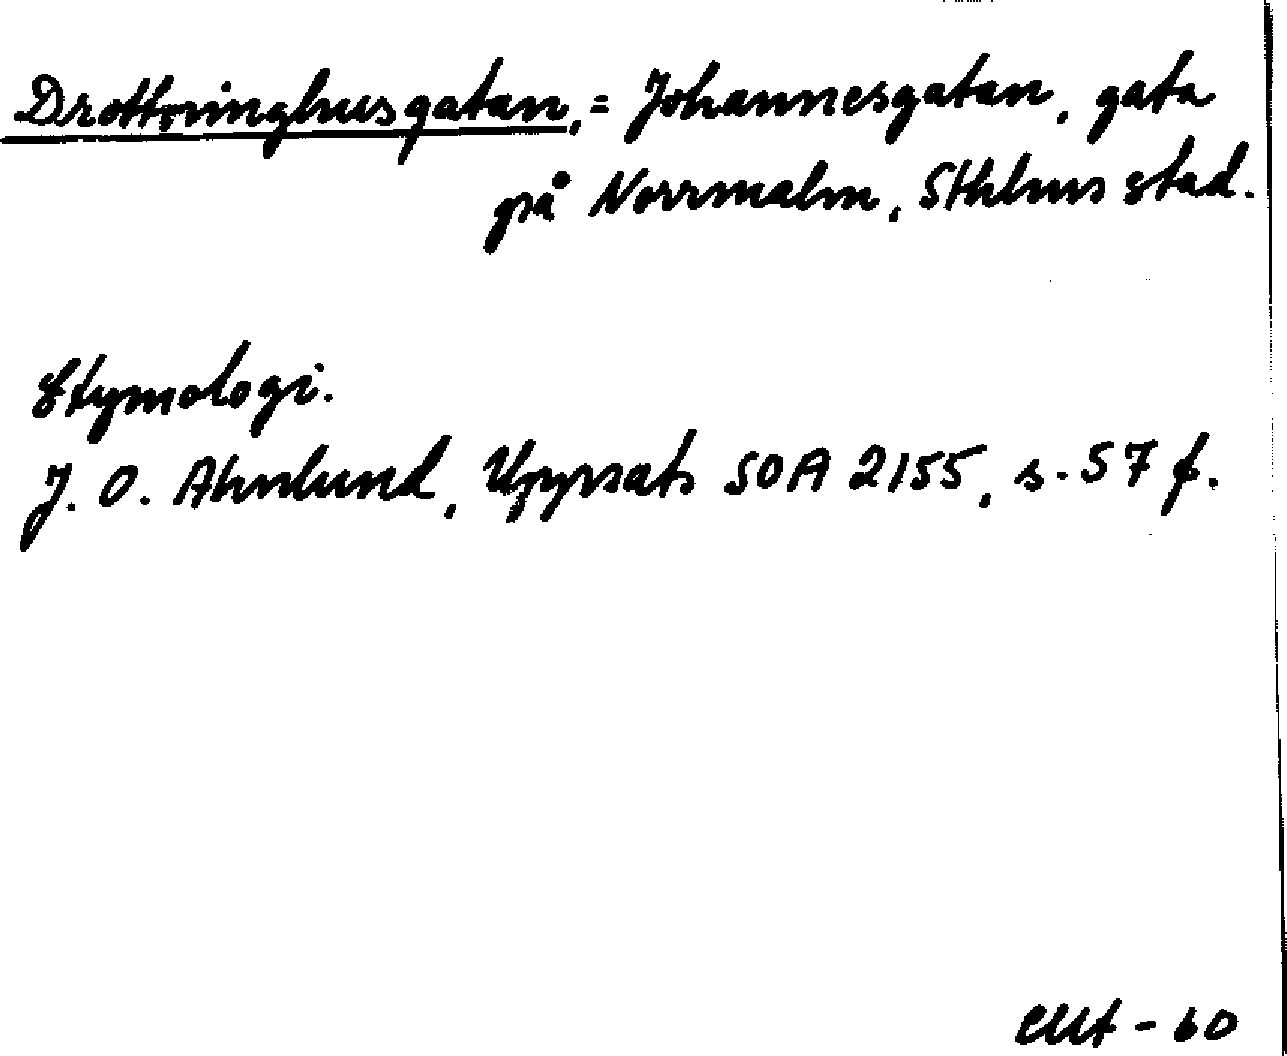 Drottninghusgatan, = Johannesgatan, gata
på Norrmalm, Sthlms stad.
Etymologi.
J. O. Ahnlund, Uppsats SOA 2155, s. 57 f.
- 60